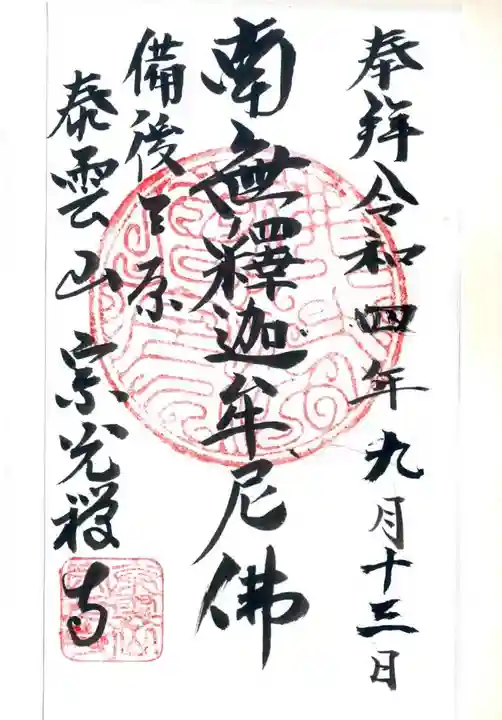 奉拜 令和四年九月十三日
南無釋迦牟尼佛
備後三原
泰雲山 宗光禅寺